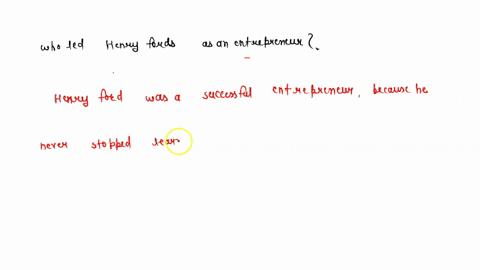 who led Henry fords as an entrepreneur?.
Henry ford was a successful entrepreneur, because he
never stopped lear